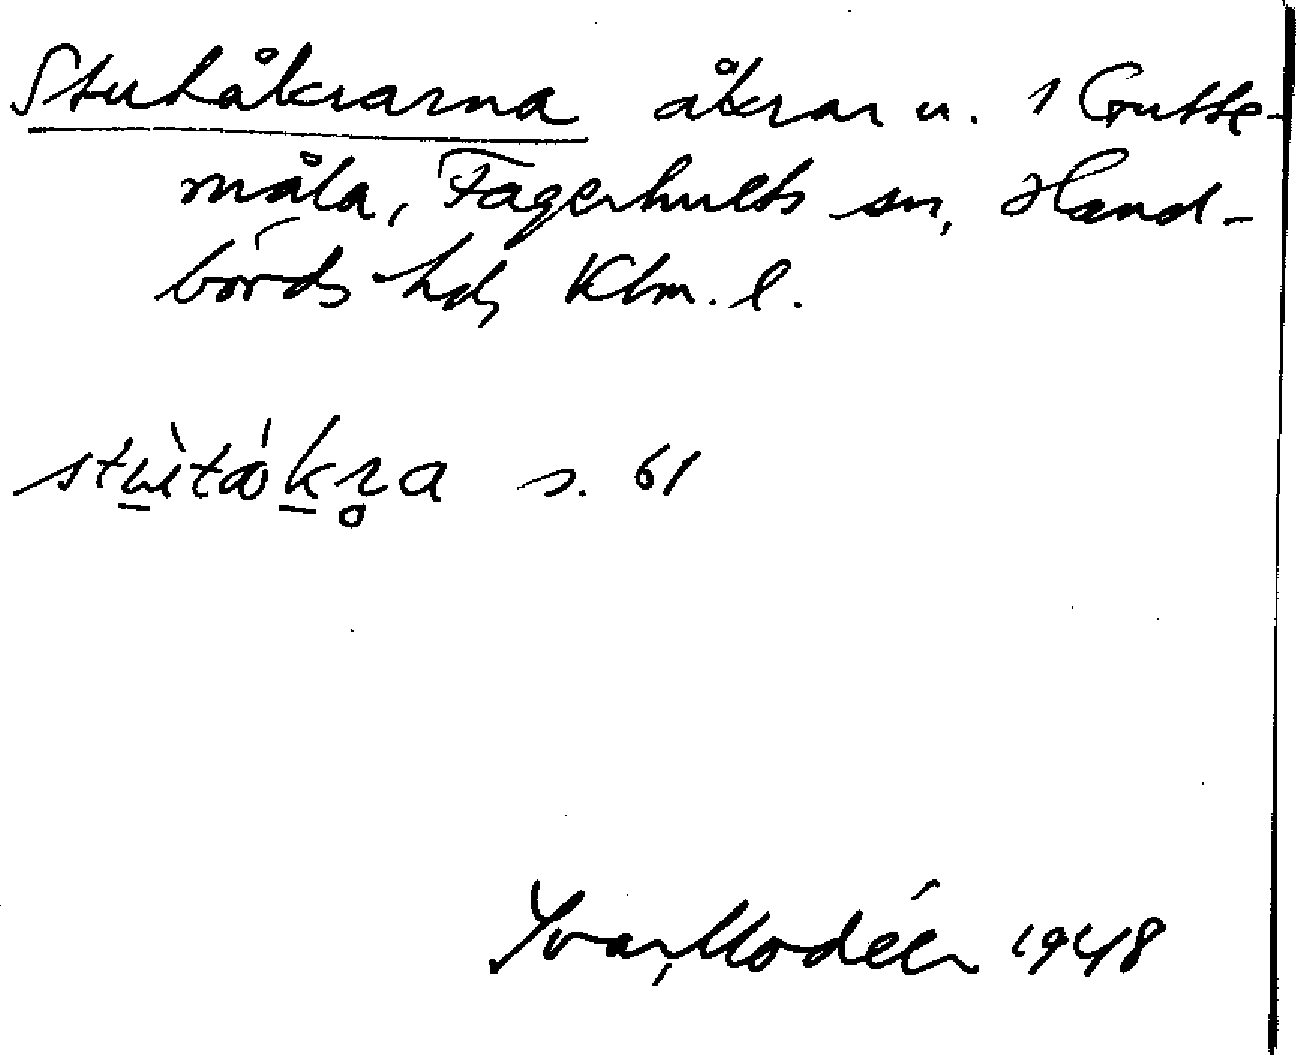 Stutåkrarna åkrar u. 1 Gutte-
måla, Fagerhults sn, Hand-
börds hd, Klm. l.
stùtǻkr̥a s. 61
Yvar Modéer 1948